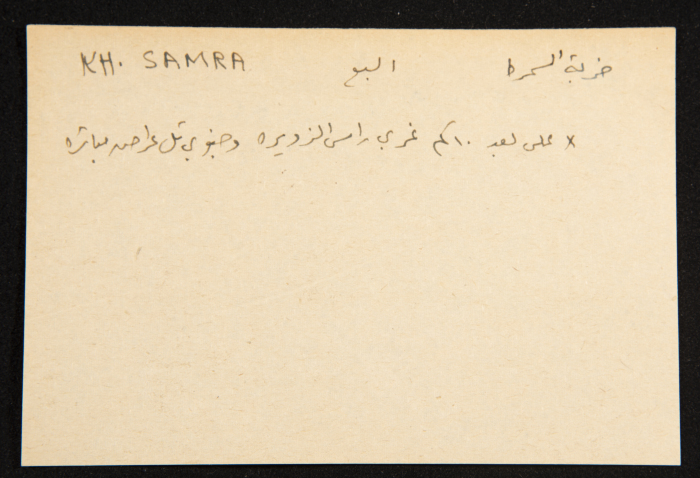 خربة السمرا السبع KH. SAMRA
x على بعد ١٠ كم غربي راس الزويره وجنوبي تل عراد مباشره